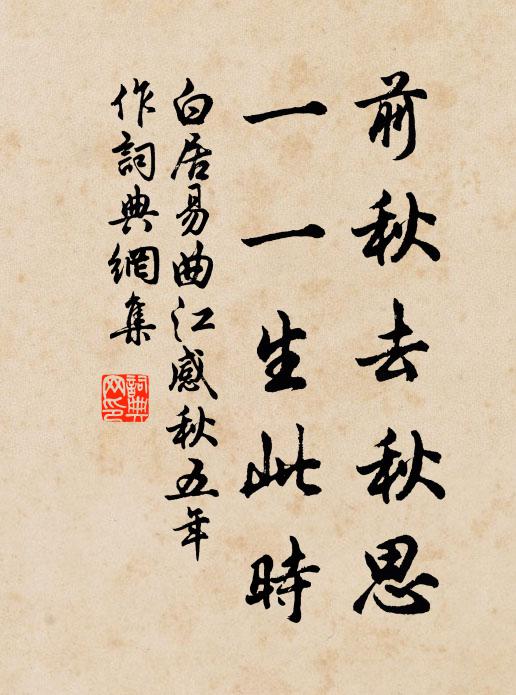 前秋去秋思
一一生此時
白居易曲江感秋五年
作詞典網集
詞典
网印